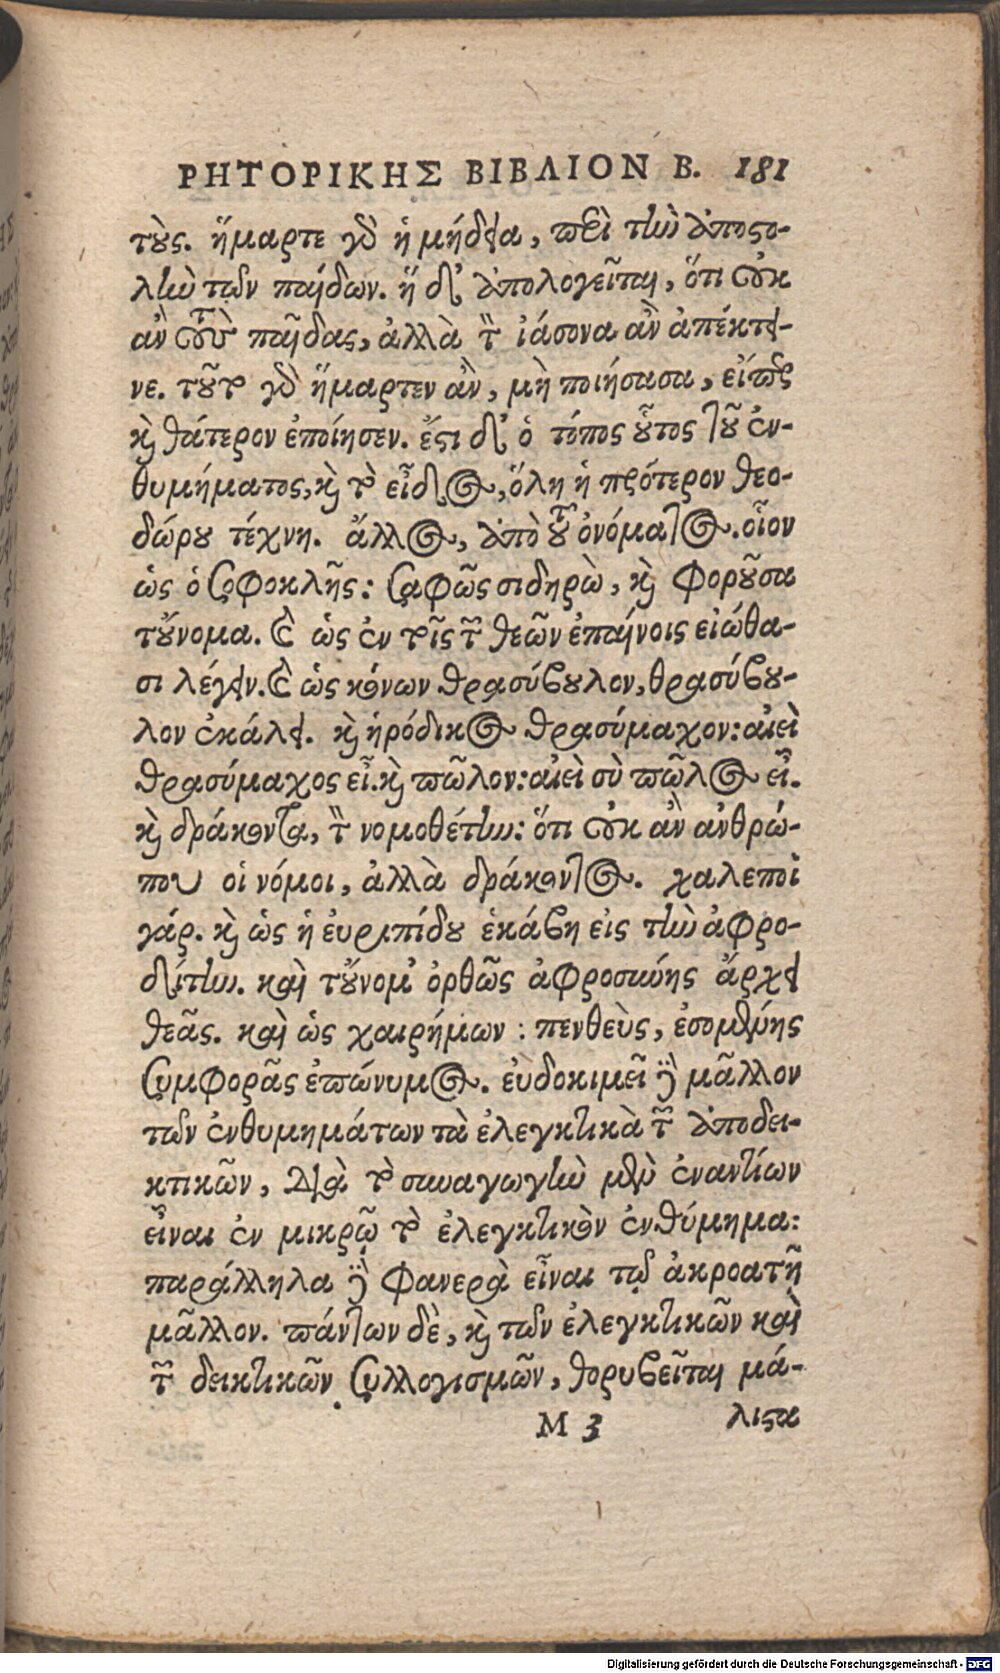 ΡΗΤΟΡΙΚΗΣ ΒΙΒΛΙΟΝ Β. 181
τοὺς. ἥμαρτε γὸ ἡ μήδεια, περὶ τὴν ἀποστο-
λὴν τῶν παίδων. ἥ δ' ἀπολογεῖται, ὅτι οὐκ
ἂν τοὺς παῖδας, ἀλλὰ τὸν ἰάσονα ἂν ἀπέκτει-
νε. τοῦτο γὸ ἥμαρτεν ἂν, μὴ ποιήσασα, εἴπερ
καὶ θάτερον ἐποίησεν. ἔστι δ' ὁ τόπος οὗτος τοῦ ἐν-
θυμήματος, καὶ τὸ εἶδος, ὅλη ἡ πρότερον θεο-
δώρου τέχνη. ἄλλος, ἀπὸ τοῦ ὀνόματος. οἷον
ὡς ὁ σοφοκλῆς: σαφῶς σιδηρὼ, καὶ φοροῦσα
τοὔνομα. καὶ ὡς ἐν τοῖς τῶν θεῶν ἐπαίνοις εἰώθα-
σι λέγειν. καὶ ὡς κόνων θρασύβουλον, θρασύβου-
λον ἐκάλει. καὶ ἡρόδικος θρασύμαχον: αἰεὶ
θρασύμαχος εἶ. καὶ πῶλον: αἰεὶ σὺ πῶλος εἶ.
καὶ δράκοντα, τὸν νομοθέτην: ὅτι οὐκ ἂν ἀνθρώ-
που οἱ νόμοι, ἀλλὰ δράκοντος. χαλεποὶ
γάρ. καὶ ὡς ἡ εὐριπίδου ἑκάβη εἰς τὴν ἀφρο-
δίτην. καὶ τοὔνομ' ὀρθῶς ἀφροσύνης ἄρχει
θεᾶς. καὶ ὡς χαιρήμων: πενθεὺς, ἐσομένης
συμφορᾶς ἐπώνυμος. εὐδοκιμεῖ δὲ μᾶλλον
τῶν ἐνθυμημάτων τὰ ἐλεγκτικὰ τῶν ἀποδει-
κτικῶν, διὰ τὸ συναγωγὴν μὲν ἐναντίων
εἶναι ἐν μικρῷ τὸ ἐλεγκτικὸν ἐνθύμημα:
παράλληλα δὲ φανερὰ εἶναι τῷ ἀκροατῇ
μᾶλλον. πάντων δὲ, καὶ τῶν ἐλεγκτικῶν καὶ
τῶν δεικτικῶν συλλογισμῶν, θορυβεῖται μά-
M 3 λιστα